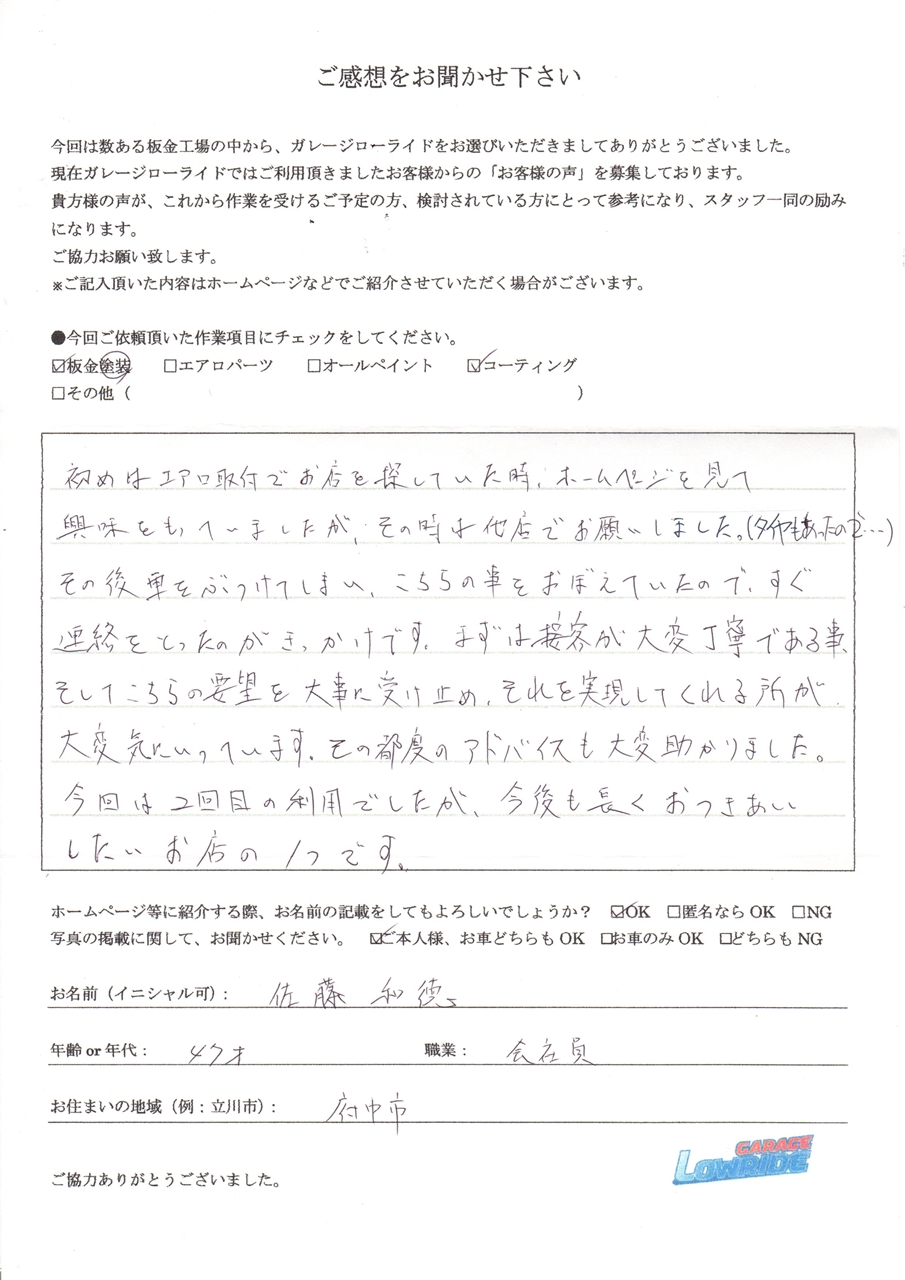 ご感想をお聞かせ下さい
今回は数ある板金工場の中から、ガレージローライドをお選びいただきましてありがとうございました。
現在ガレージローライドではご利用頂きましたお客様からの「お客様の声」を募集しております。
貴方様の声が、これから作業を受けるご予定の方、検討されている方にとって参考になり、スタッフ一同の励み
になります。
ご協力お願い致します。
※ご記入頂いた内容はホームページなどでご紹介させていただく場合がございます。
●今回ご依頼頂いた作業項目にチェックをしてください。
☑板金塗装 □エアロパーツ □オールペイント ☑コーティング
□その他（ ）
初めはエアロ取付でお店を探していた時、ホームページを見て
興味をもっていましたが、その時は他店でお願いしました。(タイヤもあったので…)
その後車をぶつけてしまい、こちらの事をおぼえていたので、すぐ
連絡をとったのがきっかけです。まずは接客が大変丁寧である事、
そしてこちらの要望を大事に受け止め、それを実現してくれる所が
大変気にいっています。その都度のアドバイスも大変助かりました。
今回は2回目の利用でしたが、今後も長くおつきあい
したいお店の1つです。
ホームページ等に紹介する際、お名前の記載をしてもよろしいでしょうか？ ☑OK □匿名なら OK □NG
写真の掲載に関して、お聞かせください。 ☑ご本人様、お車どちらも OK □お車のみ OK □どちらも NG
お名前（イニシャル可）： 佐藤 和徳
年齢 or 年代： 才 職業： 会社員
お住まいの地域（例：立川市）： 府中市
GARAGE
LOWRIDE
ご協力ありがとうございました。